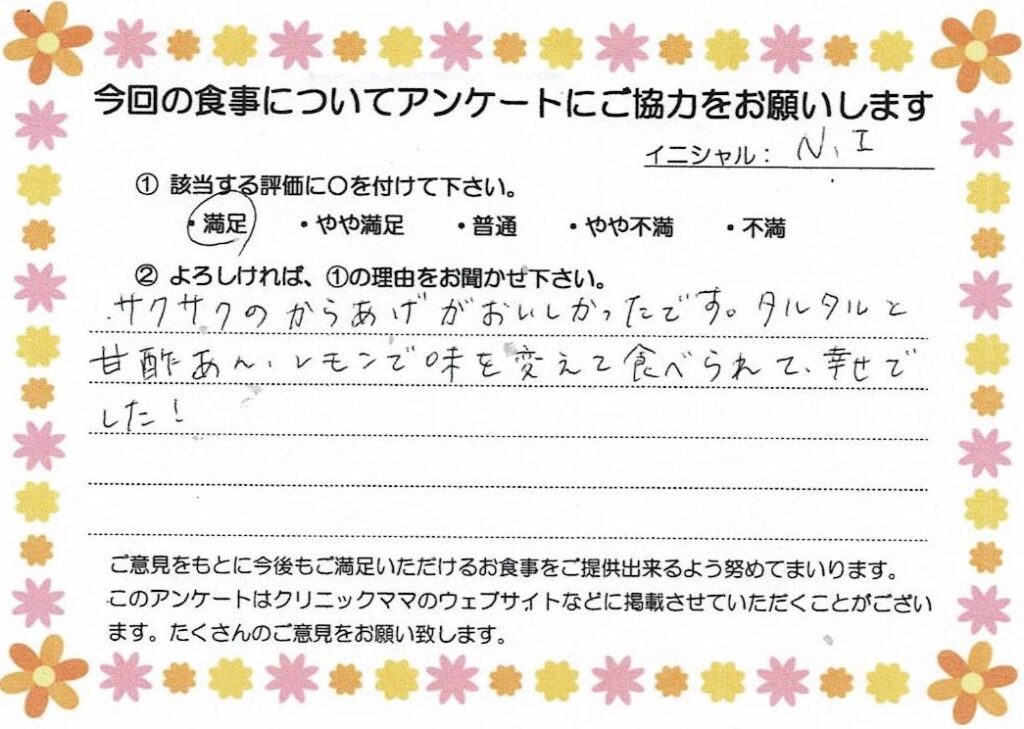 今回の食事についてアンケートにご協力をお願いします
イニシャル： N、I
① 該当する評価に〇を付けて下さい。
・満足 ・やや満足 ・普通 ・やや不満 ・不満
② よろしければ、①の理由をお聞かせ下さい。
サクサクのからあげがおいしかったです。タルタルと
甘酢あん、レモンで味を変えて食べられて、幸せで
した！
ご意見をもとに今後もご満足いただけるお食事をご提供出来るよう努めてまいります。
このアンケートはクリニックママのウェブサイトなどに掲載させていただくことがござい
ます。たくさんのご意見をお願い致します。